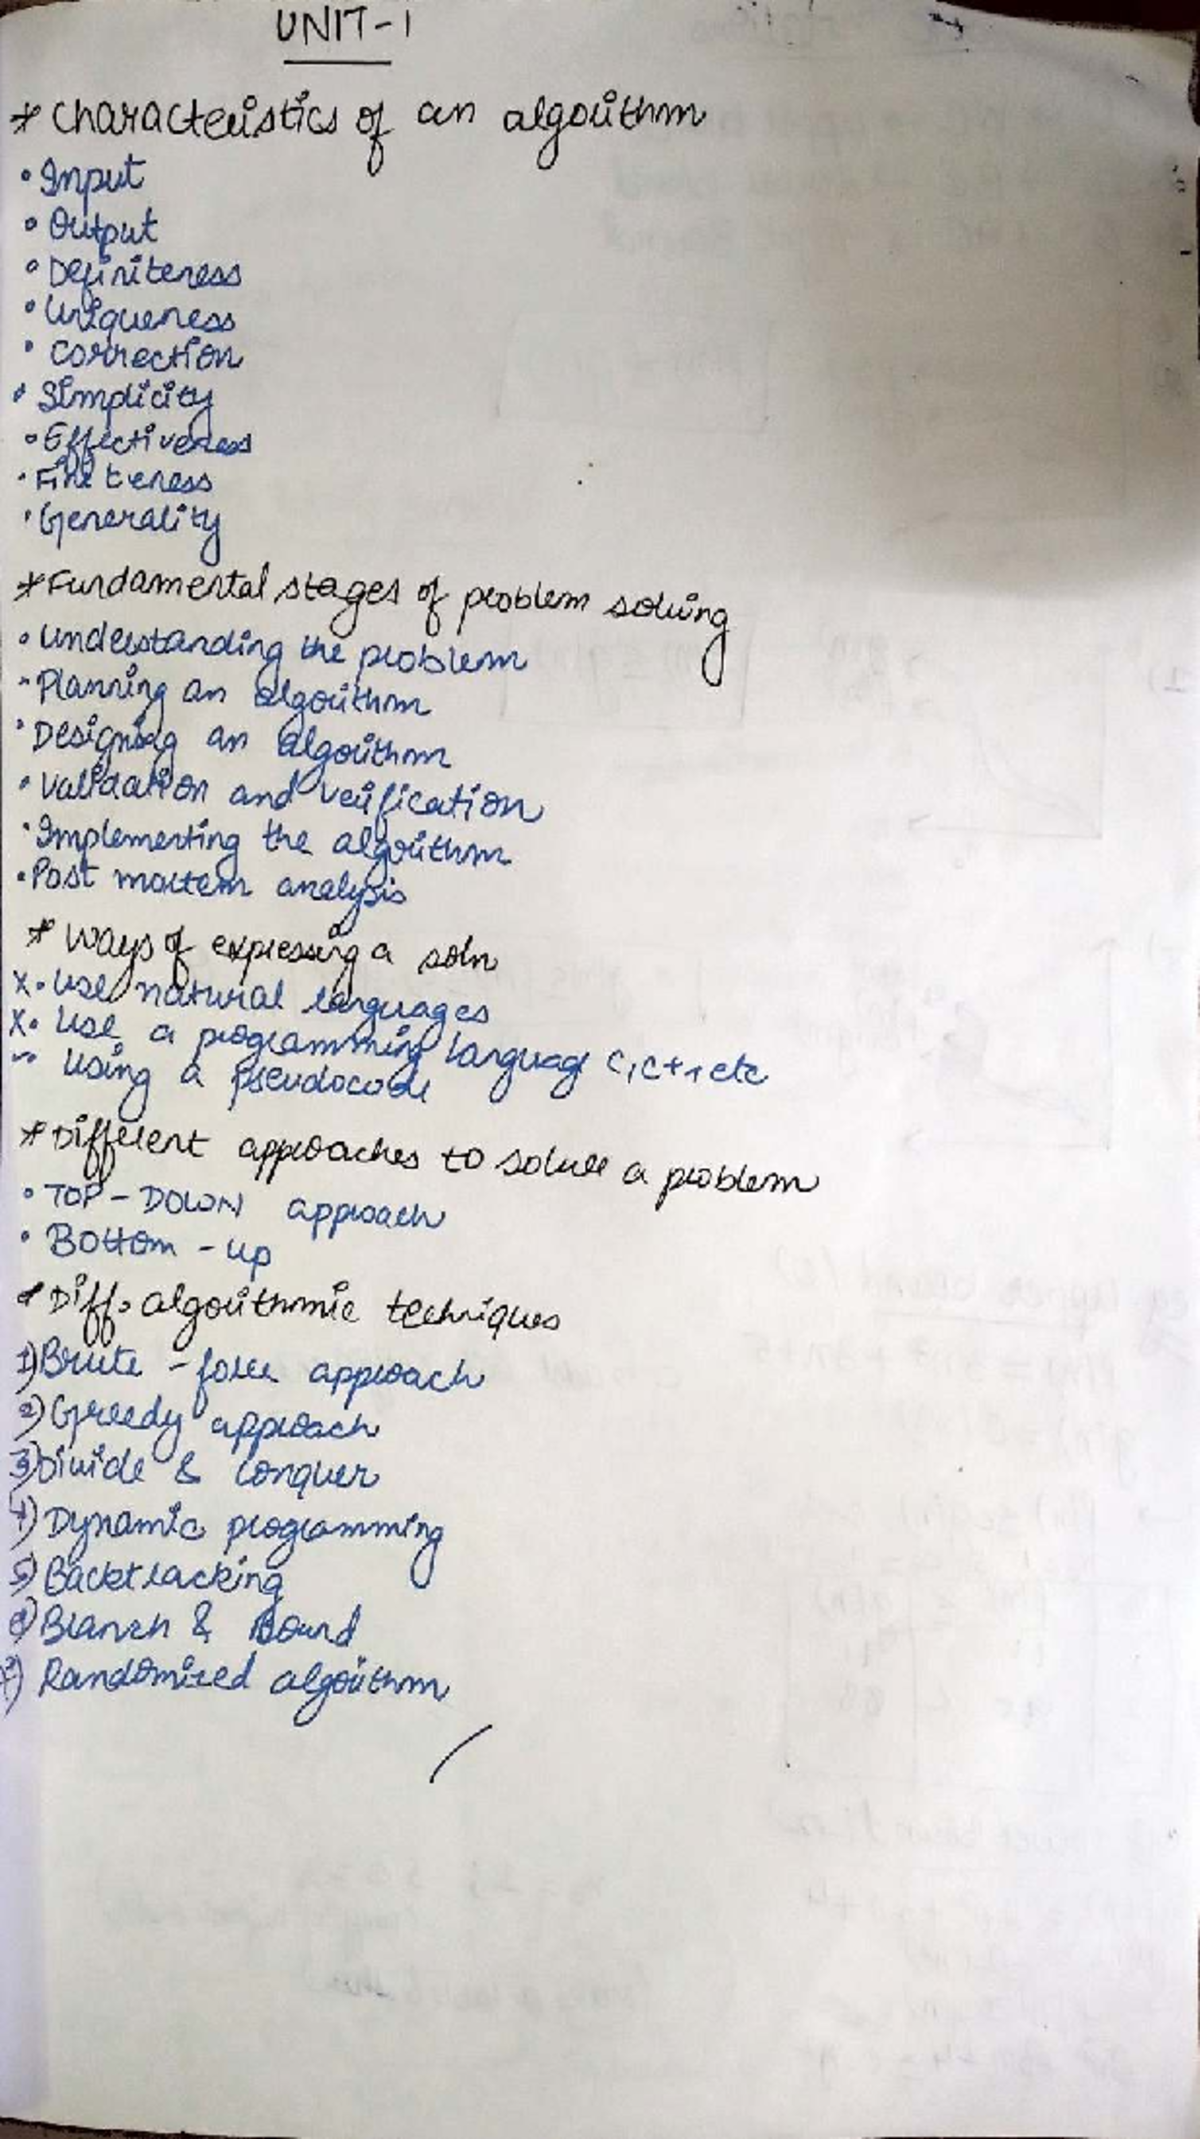 UNIT-1
* Characteristics of an algorithm
• Input
• Output
• Definiteness
• Uniqueness
• Correction
• Simplicity
• Effectiveness
• Finiteness
• Generality
* Fundamental stages of problem solving
• Understanding the problem
• Planning an algorithm
• Designing an algorithm
• Validation and verification
• Implementing the algorithm
• Post mortem analysis
* Ways of expressing a soln
X • Use natural languages
X • Use a programming language C, C++, etc
• Using a pseudocode
* Different approaches to solve a problem
• TOP-DOWN approach
• Bottom-up
* Diff. algorithmic techniques
1) Brute-force approach
2) Greedy approach
3) Divide & Conquer
4) Dynamic programming
5) Backtracking
6) Branch & Bound
7) Randomized algorithm